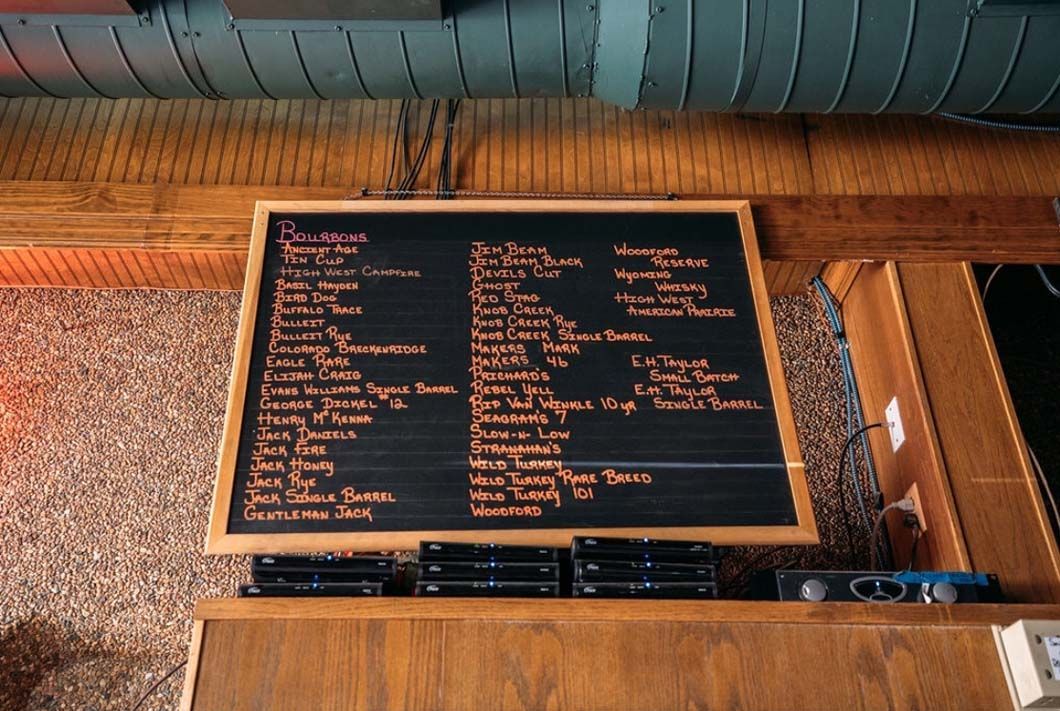 BOURBONS
ANCIENT AGE
TIN CUP
HIGH WEST CAMPFIRE
BASIL HAYDEN
BIRD DOG
BUFFALO TRACE
BULLEIT
BULLEIT RYE
COLORADO BRECKENRIDGE
EAGLE RARE
ELIJAH CRAIG
EVANS WILLIAMS SINGLE BARREL
GEORGE DICKEL #12
HENRY McKENNA
JACK DANIELS
JACK FIRE
JACK HONEY
JACK RYE
JACK SINGLE BARREL
GENTLEMAN JACK
JIM BEAM
JIM BEAM BLACK
DEVILS CUT
GHOST
RED STAG
KNOB CREEK
KNOB CREEK RYE
KNOB CREEK SINGLE BARREL
MAKERS MARK
MAKERS 46
PRICHARD'S
REBEL YELL
RIP VAN WINKLE 10 YR
SEAGRAM'S 7
SLOW-N-LOW
STRANAHAN'S
WILD TURKEY
WILD TURKEY RARE BREED
WILD TURKEY 101
WOODFORD
WOODFORD
RESERVE
WYOMING
WHISKY
HIGH WEST
AMERICAN PRAIRIE
E.H. TAYLOR
SMALL BATCH
E.H. TAYLOR
SINGLE BARREL